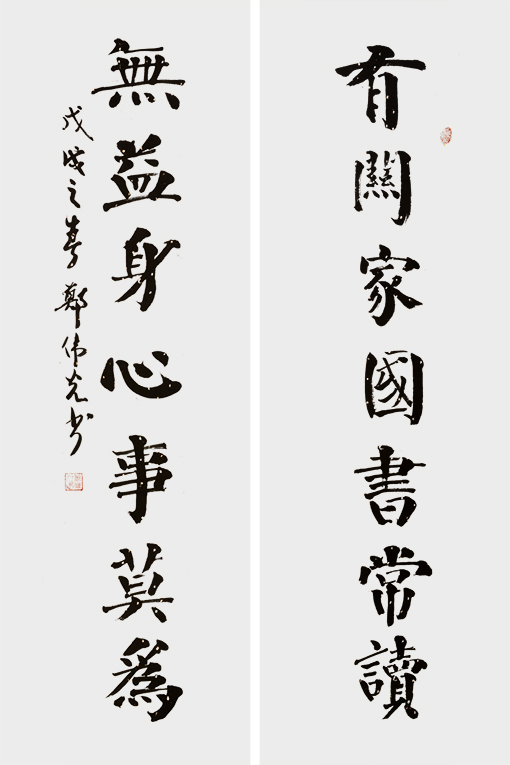 有關家國書常讀
無益身心事莫為
戊戌之春鄭伟克书